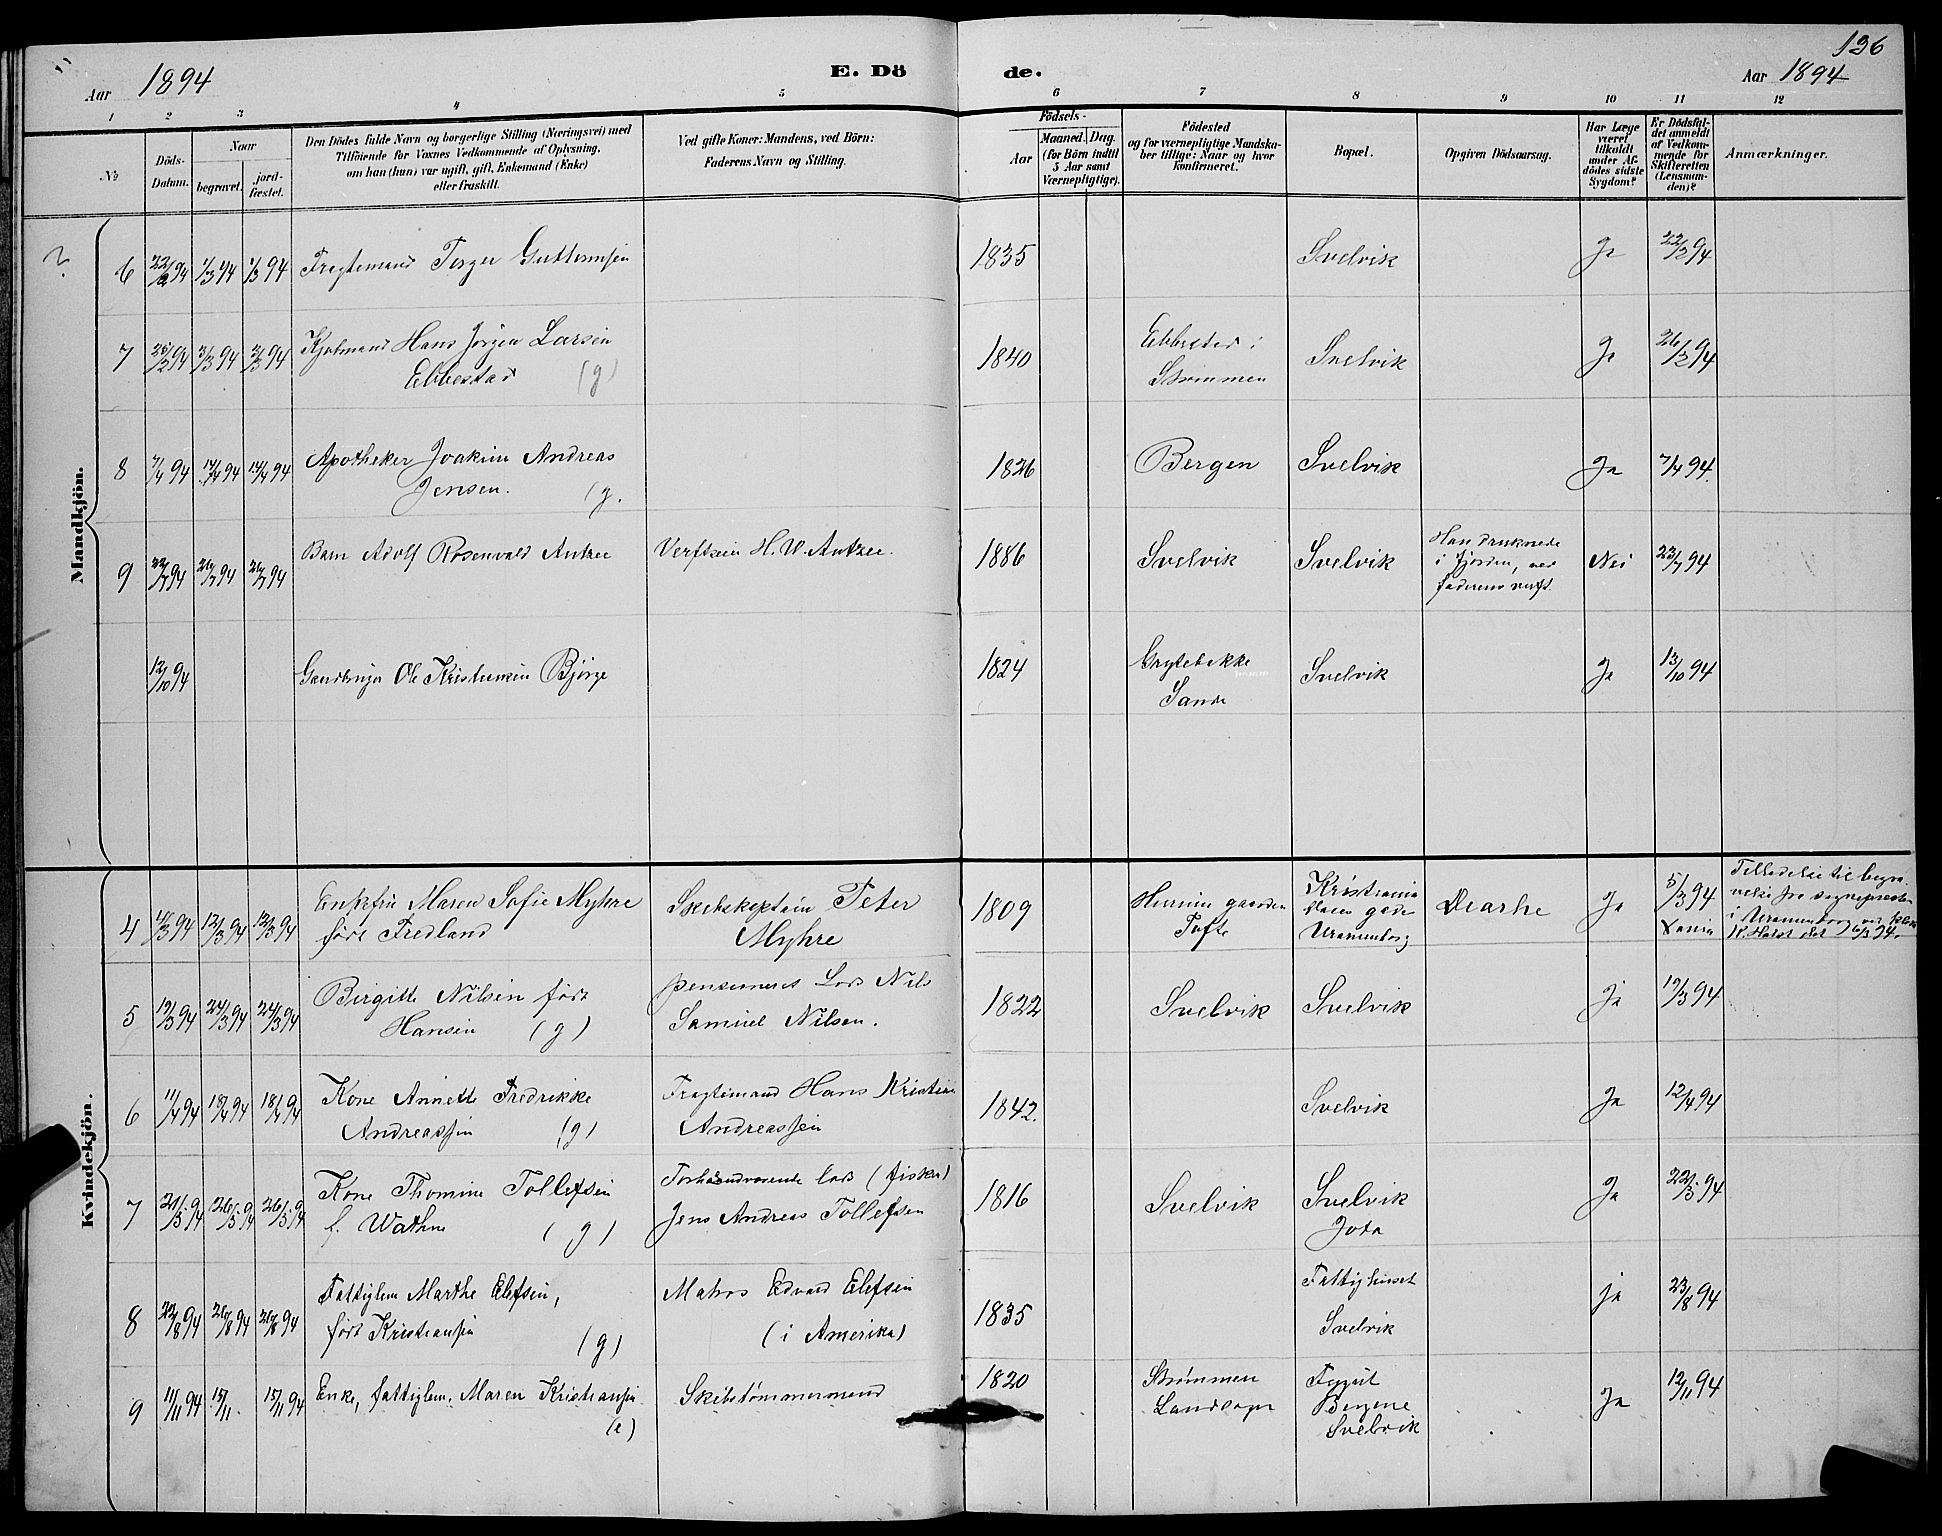 136
Aar 1894
E. Dö
de.
Aar 1894
1 2 3 4 5 6 7 8 9 10 11 12
No
Döds-
Datum.
Naar
begravet.
jord-
fæstet.
Den Dödes fulde Navn og borgerlige Stilling (Næringsvei) med
Tilföiende for Voxnes Vedkommende af Oplysning,
om han (hun) var ugift, gift, Enkemand (Enke)
eller fraskilt.
Ved gifte Koner: Mandens, ved Börn:
Faderens Navn og Stilling.
Födsels-
Aar
Maaned.
Dag.
(for Börn indtil
5 Aar samt
Værnepligtige).
Födested
og for værnepligtige Mandska-
ber tillige: Naar og hvor
konfirmeret.
Bopæl.
Opgiven Dödsaarsag.
Har Læge
været
tilkaldt
under Af-
dödes sidste
Sygdom?
Er Dödsfal-
det anmeldt
af Vedkom-
mende for
Skifteretten
(Lensman-
den)?
Anmærkninger.
Mandkjön.
6 22/2 94 1/3 94 1/3 94 Fragtemand Torger Guttormsen 1835 Svelvik Ja 22/2 94
7 25/2 94 3/3 94 3/3 94 Kjøbmand Hans Jørgen Larsen 1840 Ebbestad i Svelvik Ja 26/2 94
Ebbestad (g) Strømmen
8 7/4 94 14/4 94 14/4 94 Apotheker Joakim Andreas 1826 Bergen Svelvik Ja 7/4 94.
Jensen. (g.
9 22/7 94 26/7 94 26/7 94 Barn Adolf Rosenvald Antzee Verftseier H. W. Antzee. 1886 Svelvik Svelvik Han druknede Nei 23/7 94
i Fjorden, ved
faderens verft.
12/10 94 Gaardbruger Ole Kristensen Bjørge 1824 Grytebekke Svelvik Ja 13/10 94
Sande
Kvindekjön.
4 4/3 94 12/3 94 12/3 94 Enkefru Maren Sofie Myhre Skibskaptein Peter 1809 Hernin gaarden Kristiania Ja 5/3 94 Tilladelse til begra-
født Fredland Myhre Tofte gade Xania velse fra sognepresten
Uranienborg i Uranienborg
5 19/3 94 24/3 94 24/3 94 Birgitte Nilsen født pensioneret Lods Nils 1822 Svelvik Svelvik Ja 19/3 94
Hansen (g) Samuel Nilsen.
6 11/4 94 18/4 94 18/4 94 Kone Annette Fredrikke Fragtemand Hans Kristian 1842. Svelvik Ja 12/4 94
Andreassen (g) Andreassen
7 21/5 94 26/5 94 26/5 94 Kone Thomine Tollefsen Forhenværende Lods (fisker) 1816 Svelvik Svelvik Ja 22/5 94
f. Wathne (g) Jens Andreas Tollefsen
8 22/8 94 26/8 94 26/8 94 Fattiglem Marthe Elefsen, Matros Edvard Elefsen 1835 Fattighuset ja 23/8 94
født Kristiansen (g) (i Amerika) Svelvik
9 11/11 94 15/11. 15/11 94 Enke, fattiglem, Maren Kristiansen Skibstømmermand 1820 Strømmen Ja 12/11 94
(e) Landsogn Bergene
Svelvik